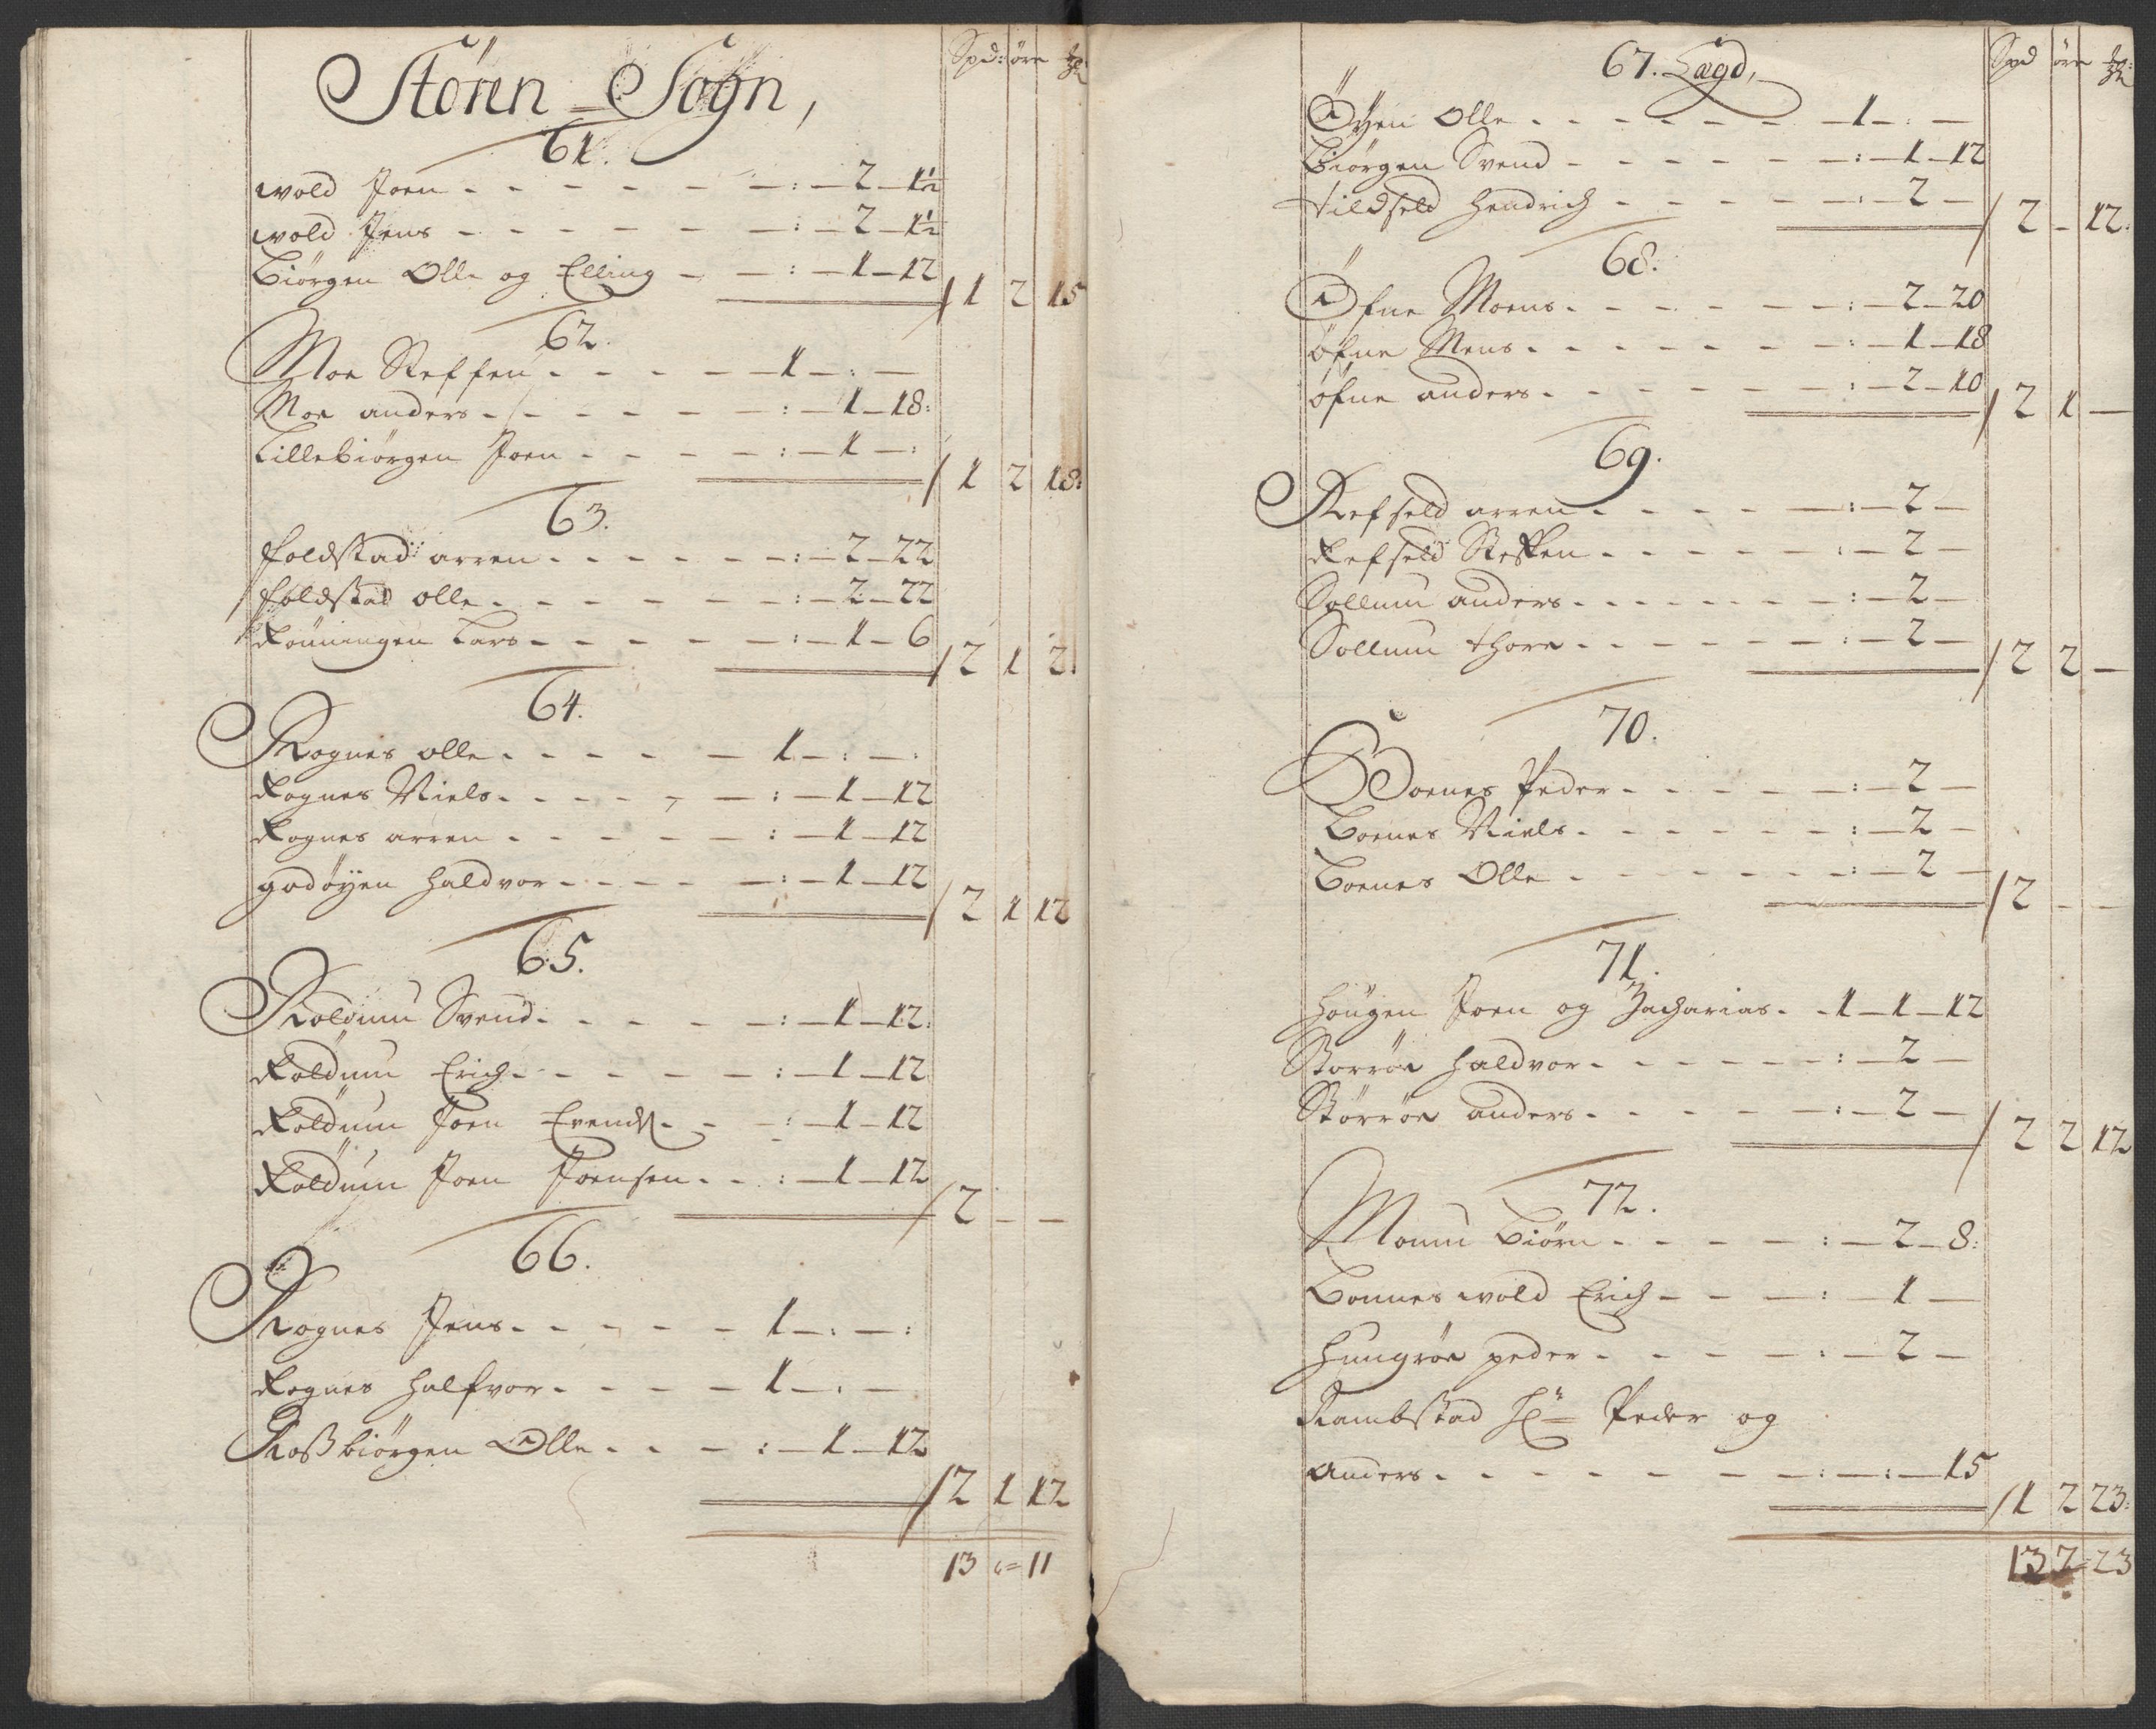 Stören Sogn,
Spd: öre
61.
wold Joen - - - - - - : - 2 - 1½
wold Jens - - - - - - : - 2 - 1½
Biörgen Olle og Elling - - : - 1 - 12
1 2 15
62.
Moe Steffen - - - - - 1 - : -
Moe anders - - - - - - : - 1 - 18:
Lillebiörgen Joen - - - - : - 1 - :
1 2 18:
63.
foldstad arren - - - - - : - 2 - 22
foldstad olle - - - - - - : - 2 - 22
Rönningen Lars - - - - - : - 1 - 6
2 1 2
64.
Rognes olle - - - - - 1 - : - .
Rognes Niels - - - - - : - 1 - 12
Rognes arren - - - - - : - 1 - 12
godöyen haldvor - - - - : - 1 - 12
2 1 12
65.
Koldum Svend - - - - - : - 1 - 12:
Koldum Erich - - - - - : - 1 - 12
Koldum Joen Evends - - - : - 1 - 12
Koldum Joen Joensen - - : - 1 - 12
2 - -
66.
Rognes Jens - - - - - 1 - : - :
Rognes halfvor - - - - 1 - : -
Roßbiörgen Olle - - - : - 1 - 12
2 1 12
13 " = 11
67. Lægd,
Spd öre
Öyen Olle - - - - - - 1 - : -
Biörgen Svend - - - - - - : - 1 - 12
vildseld hendrich - - - - - : - 2 -
2 - 12:
68.
Öfne Moens - - - - - - : - 2 - 20
öfne Mens - - - - - - - : - 1 - 18
öfne anders - - - - - - : - 2 - 10
2 1 -
69.
Refseld arren - - - - : - 2 -
Refseld Steffen - - - - - : - 2 -
Sollum anders - - - - - - : - 2 -
Sollum thore - - - - - : - 2 -
2 2 -
70.
Boenes Peder - - - - - : - 2 -
Boenes Niels - - - - - - : - 2 -
Boenes Olle - - - - - - : - 2 -
2 - -
71.
hougen Joen og Zacharias - - 1 - 1 - 12
Storröe haldvor - - - - - : - 2 -
Störröe anders - - - - - : - 2 -
2 2 12
72.
Moum Biörn - - - - : - 2 - 8:
Bonnes wold Erich - - - : - 1 -
hungröe peder - - - - : - 2 -
Rambstad Peder og
Anders - - - - - - - : - : - 15
1 2 23:
13 2 = 23